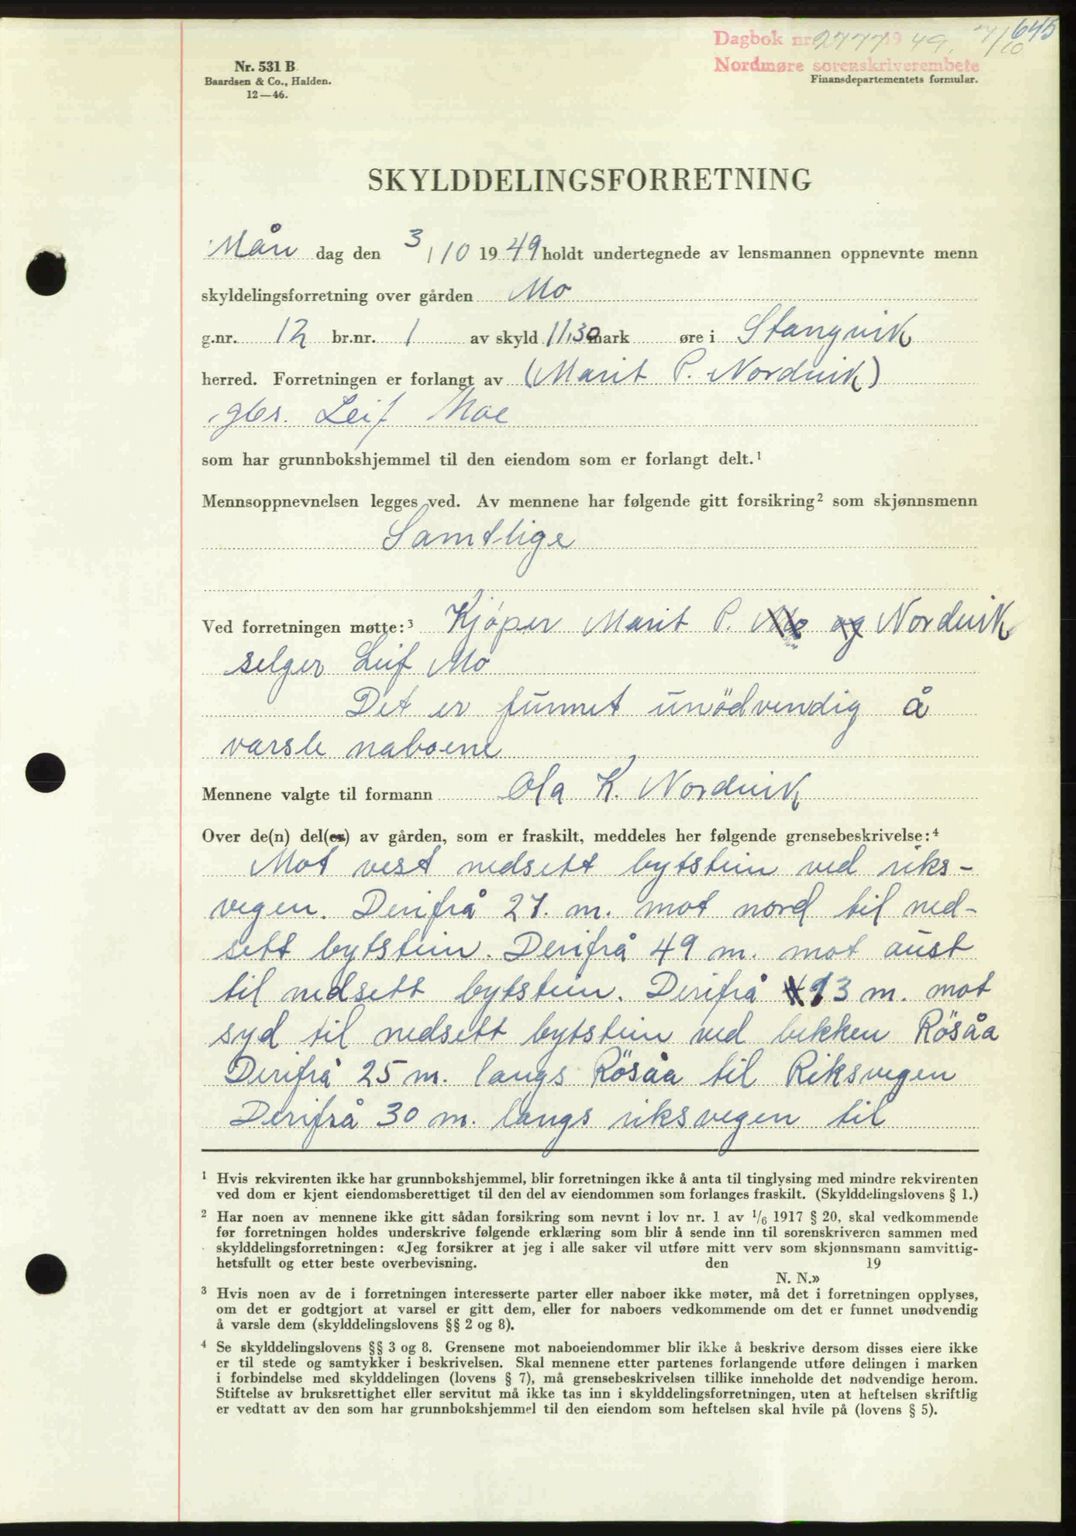 645
Dagbok nr. 2777 1949. 7/10
Nordmøre sorenskriverembete
Nr. 531 B
Baardsen & Co., Halden.
12—46.
Finansdepartementets formular.
SKYLDDELINGSFORRETNING
Mån dag den 3/10 1949 holdt undertegnede av lensmannen oppnevnte menn
skyldelingsforretning over gården Mo
g.nr. 12 br.nr. 1 av skyld 11,30 mark øre i Stangvik
herred. Forretningen er forlangt av (Marit P. Nordvik)
gbr. Leif Moe
som har grunnbokshjemmel til den eiendom som er forlangt delt.¹
Mennsoppnevnelsen legges ved. Av mennene har følgende gitt forsikring² som skjønnsmenn
Samtlige
Ved forretningen møtte:³ Kjöper Marit P. Mo og Nordvik
selger Leif Mo
Det er funnet unödvendig å
varsle naboene
Mennene valgte til formann Ola K. Nordvik
Over de(n) del(er) av gården, som er fraskilt, meddeles her følgende grensebeskrivelse:⁴
Mot vest nedsett bytstein ved riks-
vegen. Derifrå 27. m. mot nord til ned-
sett bytstein. Derifrå 49 m. mot aust
til nedsett bytstein. Derifrå 13 m. mot
syd til nedsett bytstein ved bekken Rösåa
Derifrå 25 m. langs Rösåa til Riksvegen
Derifrå 30 m. langs riksvegen til
¹ Hvis rekvirenten ikke har grunnbokshjemmel, blir forretningen ikke å anta til tinglysing med mindre rekvirenten
ved dom er kjent eiendomsberettiget til den del av eiendommen som forlanges fraskilt. (Skylddelingslovens § 1.)
² Har noen av mennene ikke gitt sådan forsikring som nevnt i lov nr. 1 av 1/6 1917 § 20, skal vedkommende
før forretningen holdes underskrive følgende erklæring som blir å sende inn til sorenskriveren sammen med
skylddelingsforretningen: «Jeg forsikrer at jeg i alle saker vil utføre mitt verv som skjønnsmann samvittig-
hetsfullt og etter beste overbevisning. den 19
N. N.»
³ Hvis noen av de i forretningen interesserte parter eller naboer ikke møter, må det i forretningen opplyses,
om det er godtgjort at varsel er gitt dem, eller for naboers vedkommende om det er funnet unødvendig
å varsle dem (skylddelingslovens §§ 2 og 8).
⁴ Se skylddelingslovens §§ 3 og 8. Grensene mot naboeiendommer blir ikke å beskrive dersom disses eiere ikke
er til stede og samtykker i beskrivelsen. Skal mennene etter partenes forlangende utføre delingen i marken
i forbindelse med skylddelingen (lovens § 7), må grensebeskrivelsen tillike inneholde det nødvendige herom.
Stiftelse av bruksrettighet eller servitut må ikke tas inn i skylddelingsforretningen, uten at heftelsen skriftlig
er vedtatt av den som har grunnbokshjemmel til den eiendom som heftelsen skal hvile på (lovens § 5).